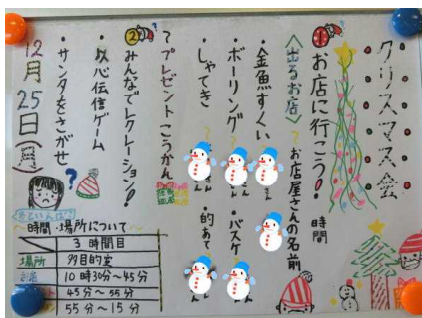 クリスマス会
① お店に行こう! 時間
<出るお店> ? お店屋さんの名前
・金魚すくい
・ボーリング ・バスケ
・しゃてき ・的あて
? プレゼントこうかん
② みんなでレクリエーション!
・以心伝信ゲーム
・サンタをさがせ
12月25日(月)
~時間・場所について~
3時間目
場所 多目的室
10時30分~45分
45分~55分
55分~15分